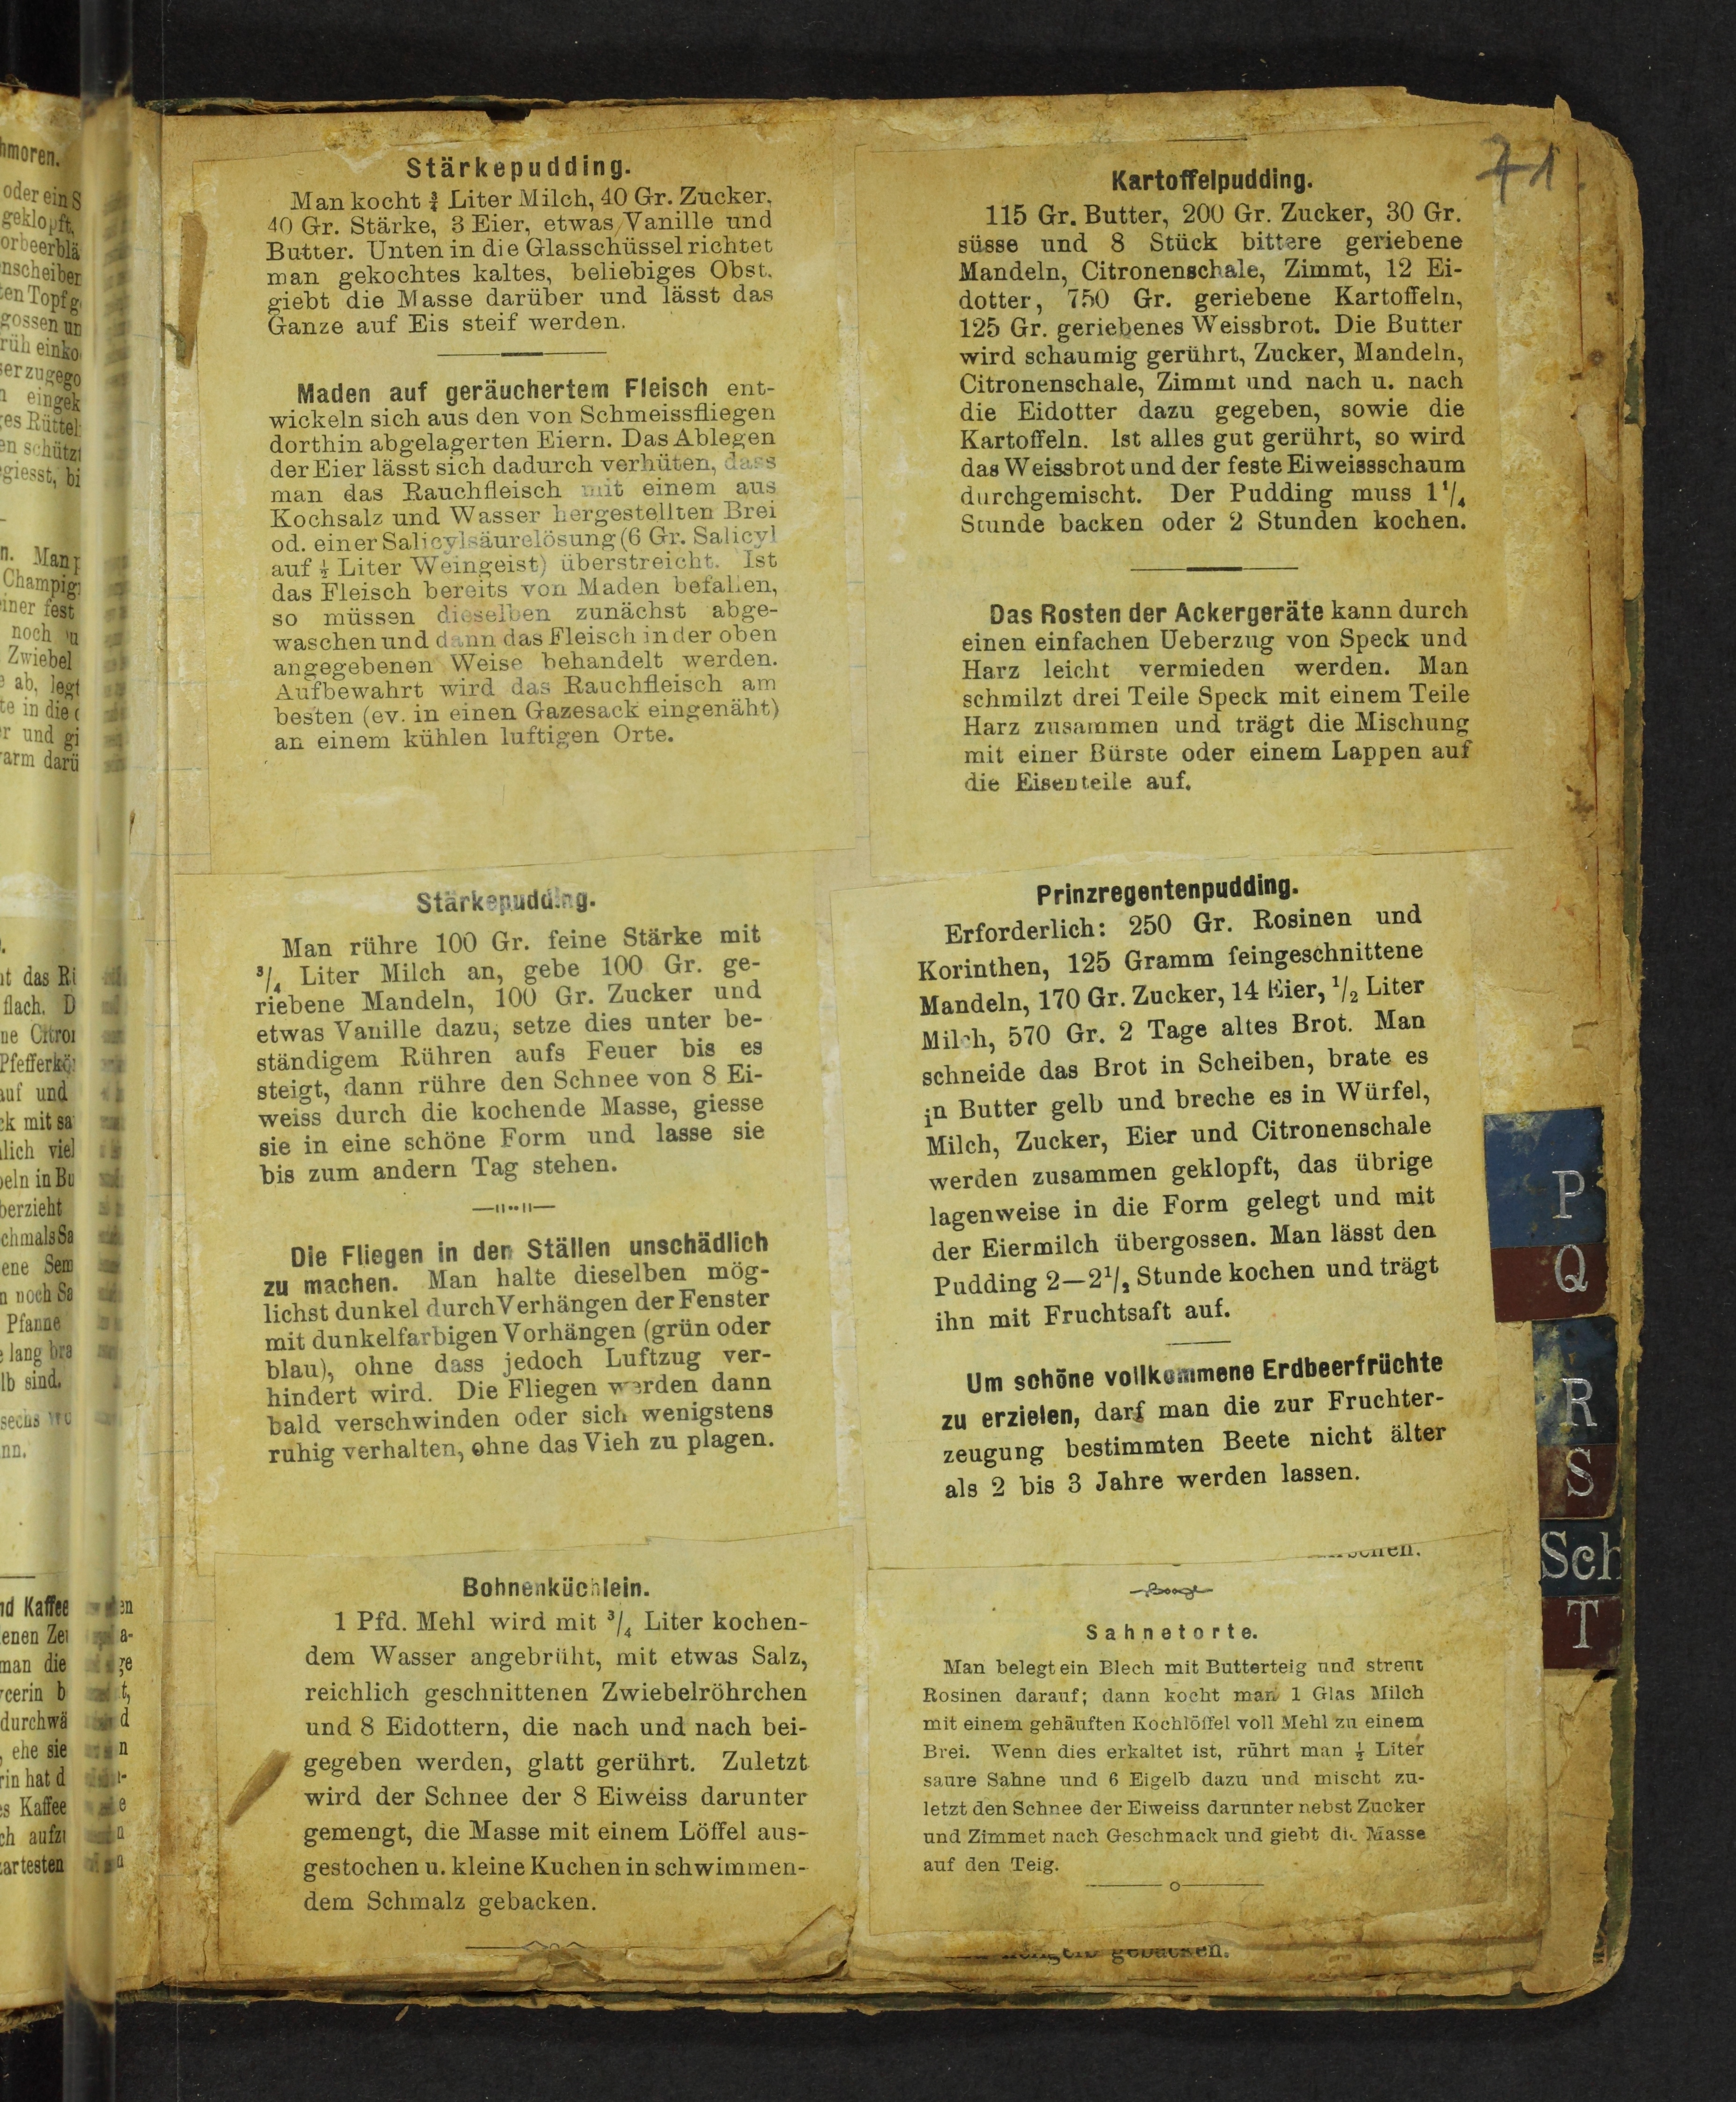 71
Stärkepudding.
Man kocht ¾ Liter Milch, 40 Gr. Zucker,
40 Gr. Stärke, 3 Eier, etwas Vanille und
Butter. Unten in die Glasschüssel richtet
man gekochtes kaltes, beliebiges Obst,
giebt die Masse darüber und lässt das
Ganze auf Eis steif werden.
Maden auf geräuchertem Fleisch ent-
wickeln sich aus den von Schmeissfliegen
dorthin abgelagerten Eiern. Das Ablegen
der Eier lässt sich dadurch verhüten, dass
man das Rauchfleisch mit einem aus
Kochsalz und Wasser hergestellten Brei
od. einer Salicylsäurelösung (6 Gr. Salicyl
auf ½ Liter Weingeist) überstreicht. Ist
das Fleisch bereits von Maden befallen,
so müssen dieselben zunächst abge-
waschen und dann das Fleisch in der oben
angegebenen Weise behandelt werden.
Aufbewahrt wird das Rauchfleisch am
besten (ev. in einen Gazesack eingenäht)
an einem kühlen luftigen Orte.
Stärkepudding.
Man rühre 100 Gr. feine Stärke mit
3/4 Liter Milch an, gebe 100 Gr. ge-
riebene Mandeln, 100 Gr. Zucker und
etwas Vanille dazu, setze dies unter be-
ständigem Rühren aufs Feuer bis es
steigt, dann rühre den Schnee von 8 Ei-
weiss durch die kochende Masse, giesse
sie in eine schöne Form und lasse sie
bis zum andern Tag stehen.
Die Fliegen in den Ställen unschädlich
zu machen. Man halte dieselben mög-
lichst dunkel durch Verhängen der Fenster
mit dunkelfarbigen Vorhängen (grün oder
blau), ohne dass jedoch Luftzug ver-
hindert wird. Die Fliegen werden dann
bald verschwinden oder sich wenigstens
ruhig verhalten, ohne das Vieh zu plagen.
Bohnenküchlein.
1 Pfd. Mehl wird mit 3/4 Liter kochen-
dem Wasser angebrüht, mit etwas Salz,
reichlich geschnittenen Zwiebelröhrchen
und 8 Eidottern, die nach und nach bei-
gegeben werden, glatt gerührt. Zuletzt
wird der Schnee der 8 Eiweiss darunter
gemengt, die Masse mit einem Löffel aus-
gestochen u. kleine Kuchen in schwimmen-
dem Schmalz gebacken.
Kartoffelpudding.
115 Gr. Butter, 200 Gr. Zucker, 30 Gr.
süsse und 8 Stück bittere geriebene
Mandeln, Citronenschale, Zimmt, 12 Ei-
dotter, 750 Gr. geriebene Kartoffeln,
125 Gr. geriebenes Weissbrot. Die Butter
wird schaumig gerührt, Zucker, Mandeln,
Citronenschale, Zimmt und nach u. nach
die Eidotter dazu gegeben, sowie die
Kartoffeln. Ist alles gut gerührt, so wird
das Weissbrot und der feste Eiweissschaum
durchgemischt. Der Pudding muss 1 1/4
Stunde backen oder 2 Stunden kochen.
Das Rosten der Ackergeräte kann durch
einen einfachen Ueberzug von Speck und
Harz leicht vermieden werden. Man
schmilzt drei Teile Speck mit einem Teile
Harz zusammen und trägt die Mischung
mit einer Bürste oder einem Lappen auf
die Eisenteile auf.
Prinzregentenpudding.
Erforderlich: 250 Gr. Rosinen und
Korinthen, 125 Gramm feingeschnittene
Mandeln, 170 Gr. Zucker, 14 Eier, 1/2 Liter
Milch, 570 Gr. 2 Tage altes Brot. Man
schneide das Brot in Scheiben, brate es
in Butter gelb und breche es in Würfel,
Milch, Zucker, Eier und Citronenschale
werden zusammen geklopft, das übrige
lagenweise in die Form gelegt und mit
der Eiermilch übergossen. Man lässt den
Pudding 2—2 1/2 Stunde kochen und trägt
ihn mit Fruchtsaft auf.
Um schöne vollkommene Erdbeerfrüchte
zu erzielen, darf man die zur Fruchter-
zeugung bestimmten Beete nicht älter
als 2 bis 3 Jahre werden lassen.
Sahnetorte.
Man belegt ein Blech mit Butterteig und streut
Rosinen darauf; dann kocht man 1 Glas Milch
mit einem gehäuften Kochlöffel voll Mehl zu einem
Brei. Wenn dies erkaltet ist, rührt man ½ Liter
saure Sahne und 6 Eigelb dazu und mischt zu-
letzt den Schnee der Eiweiss darunter nebst Zucker
und Zimmet nach Geschmack und giebt die Masse
auf den Teig.
gebacken.
P
Q
R
S
Sch
T